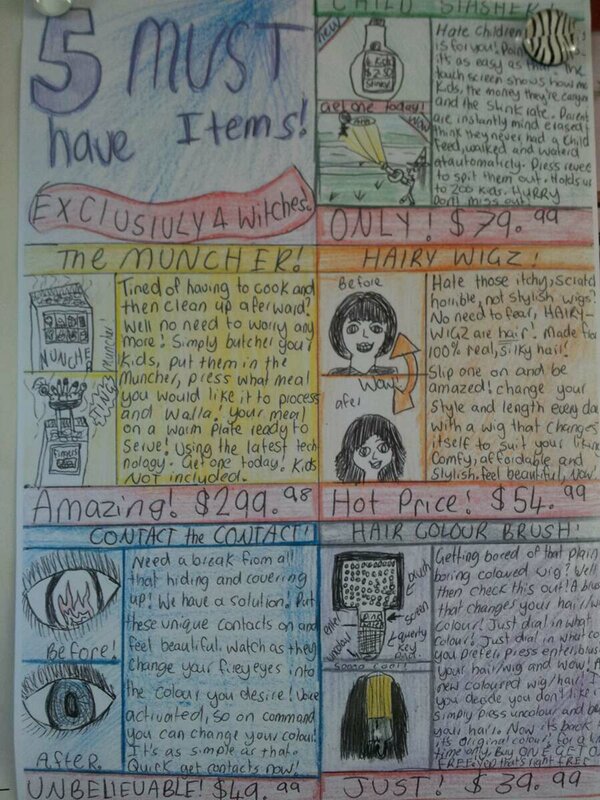 5 MUST
have Items!
EXCLUSIULY 4 Witches!
CHILD STASHER
new
Get one today!
Hate children
is for you!
its as easy as the
touch screen shows how
Kids, the money they're
and the stink rate. Parent
are instantly mind erased
think they never had a child
feed, walked and waterd
atautomaticly. Press
to spit them out. Holds
to 200 kids. HURRY
Don't miss out!
ONLY! $79.99
The MUNCHER!
MUNCHE
Muncher!
Tired of having to cook and
then clean up aferward?
Well no need to worry any
more! Simply butcher your
Kids, put them in the
Muncher, press what meal
you would like it to process
and Walla! your meal
on a warm plate ready to
Serve! Using the latest tech
nology. Get one today! Kids
NOT included.
Amazing! $299.98
HAIRY WIGZ!
Before
Wow
afer
Hate those itchy, scratch
horrible, not stylish wigs?
No need to fear, HAIRY-
WIGZ are hair! Made from
100% real, silky hair!
Slip one on and be
amazed! change your
Style and length every day
with a wig that changes
itself to suit your liking
Comfy, affordable and
Stylish, feel beautiful, Now!
Hot Price! $54.99
CONTACT the CONTACT!
Before!
After
Need a break from all
that hiding and covering
up! We have a solution. Put
these unique contacts on and
feel beautiful. Watch as they
change your fireyeyes into
the colour you desire! Voice
activated, so on command
you can change your colour!
It's as simple as that.
Quick get contacts now!
UNBELIEUABLE! $49.99
HAIR COLOUR BRUSH!
brush
screen
enter
undo
querty
key
Pad.
Soooo Cool!
Getting bored of that plain
boring coloured wig? Well
then check this out! A brush
that changes your hair/wig
colour! Just dial in what
colour! Just dial in what co
you prefer, press enter, brush
your hair/wig and wow! A
new coloured wig/hair! I
you decide you don't like i
simply press uncolour and b
your hair. Now its back
its original colour! for a
time only Buy ONE GET O
FREE yep that's right FREE
JUST! $39.99